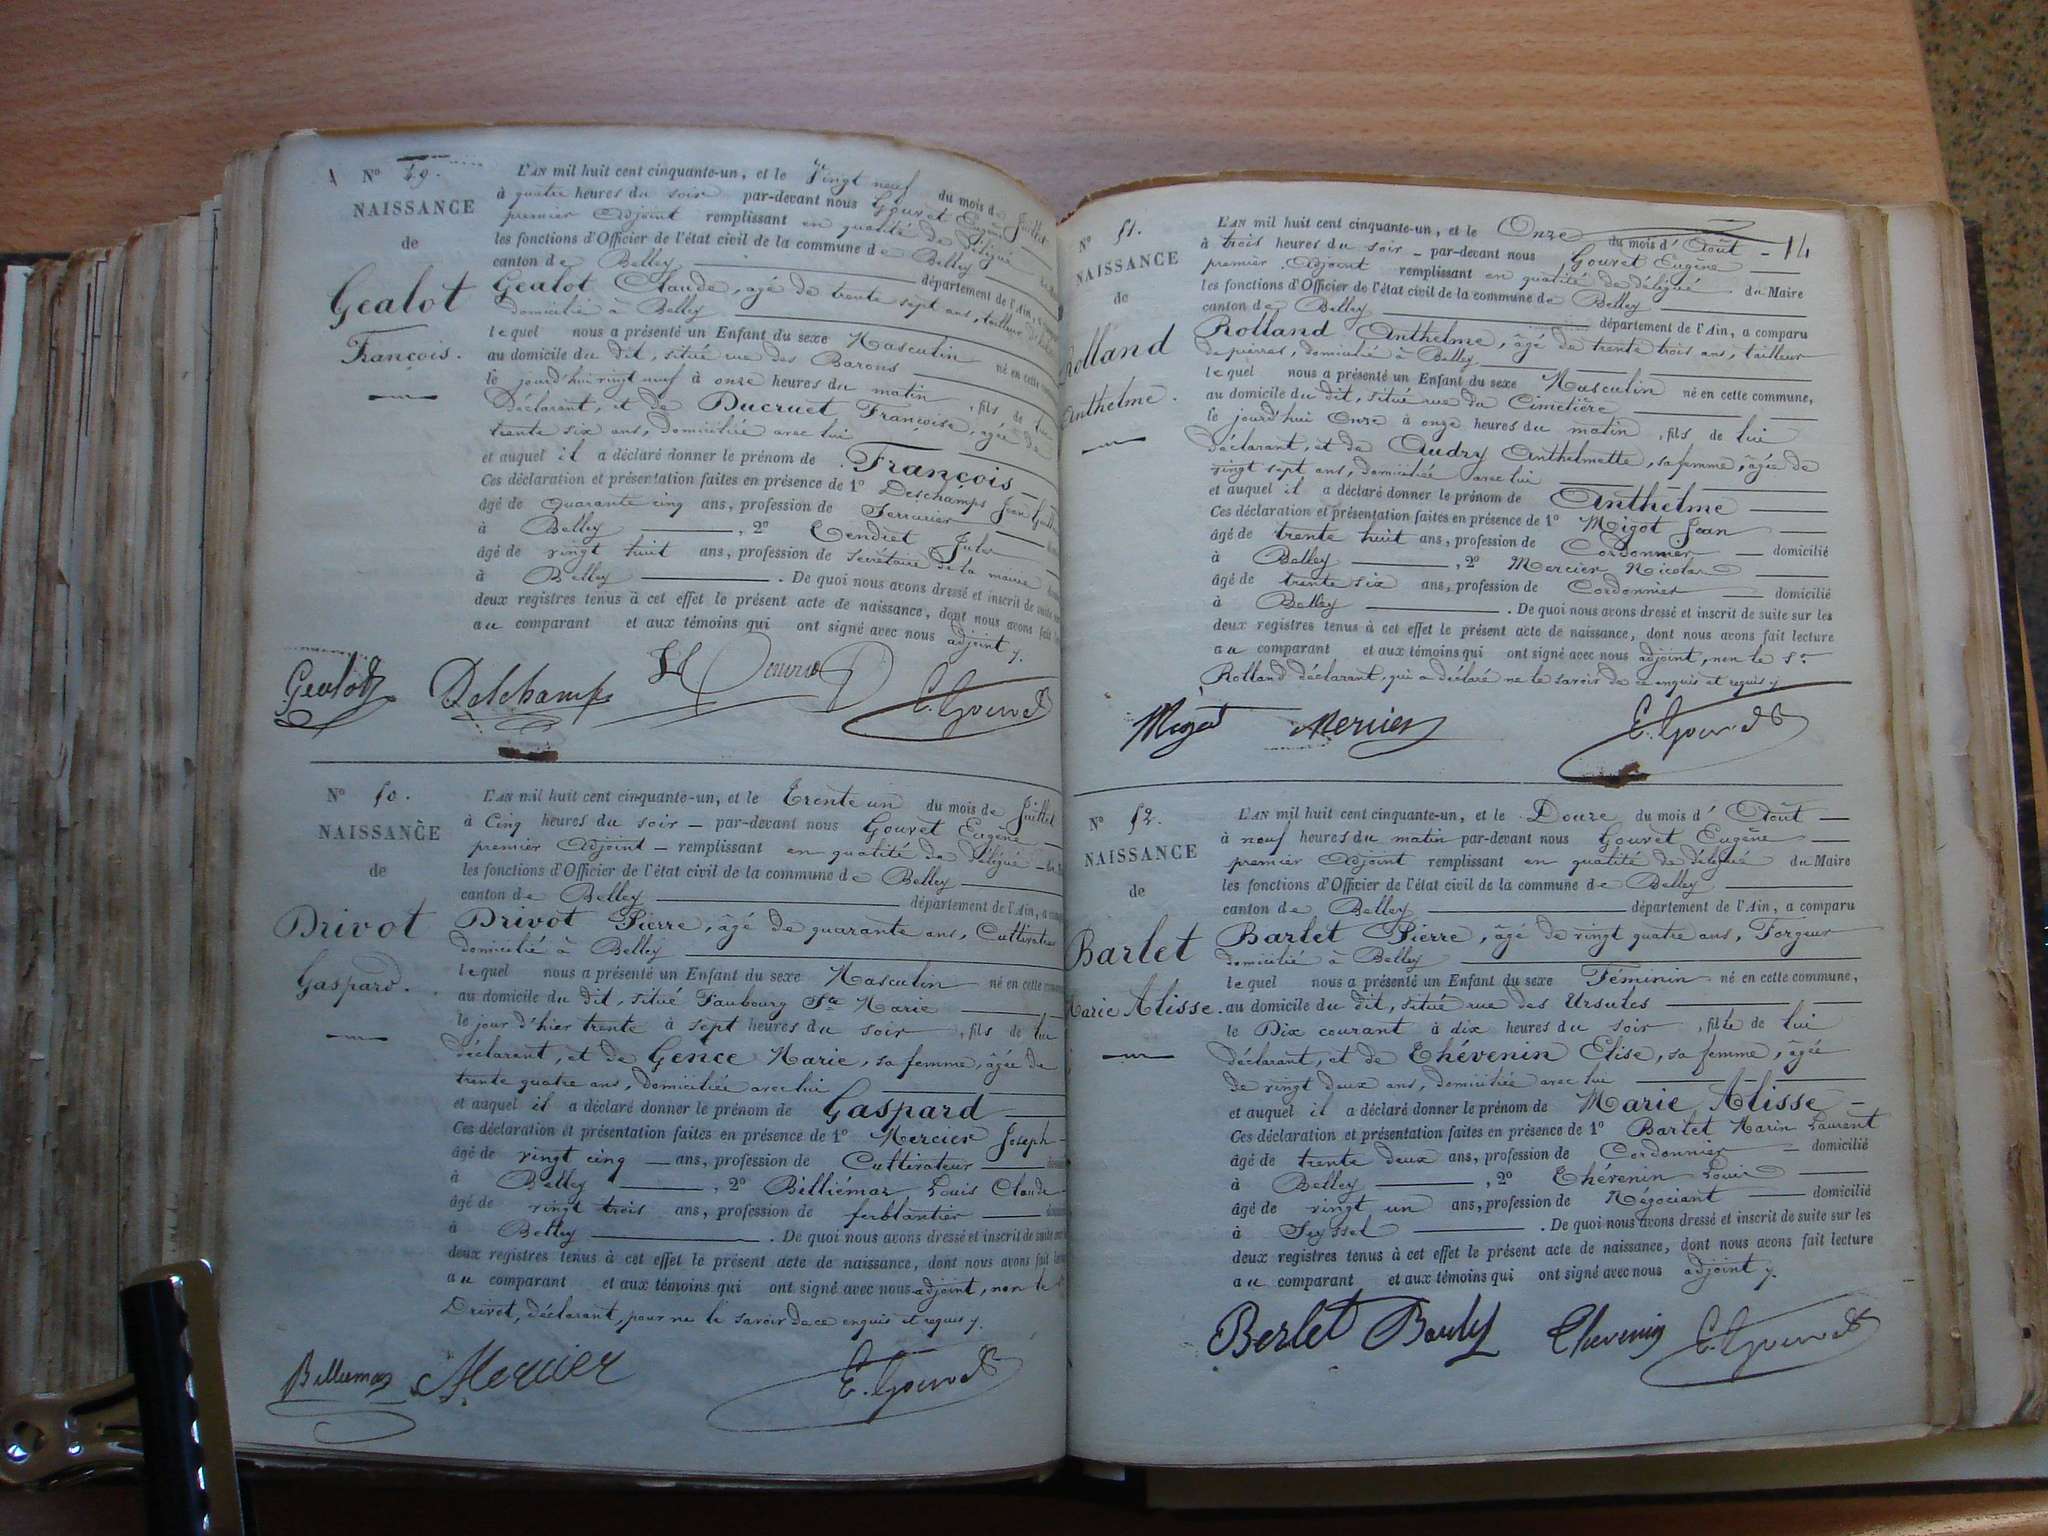 N° 49.
NAISSANCE
de
Gealot
François.
L'AN mil huit cent cinquante-un, et le Vingt neuf du mois de Juillet
à quatre heures du soir par-devant nous Gouvet Eugène
premier Adjoint remplissant en qualité de délégué
les fonctions d'Officier de l'état civil de la commune de Belley
canton de Belley département de l'Ain, a
Gealot Claude, âgé de trente sept ans, tailleur
domicilié à Belley
lequel nous a présenté un Enfant du sexe Masculin né en cette
au domicile du dit, situé rue des Barons
le jourd'hui vingt neuf à onze heures du matin, fils de lui
déclarant, et de Ducruet Françoise, agée de
trente six ans, domiciliée avec lui
et auquel il a déclaré donner le prénom de François
Ces déclaration et présentation faites en présence de 1° Deschamps Jean
âgé de Quarante cinq ans, profession de Serrurier
à Belley, 2° Tendret Jules
âgé de vingt huit ans, profession de secrétaire de la mairie
à Belley. De quoi nous avons dressé et inscrit de suite
deux registres tenus à cet effet le présent acte de naissance, dont nous avons fait
au comparant et aux témoins qui ont signé avec nous adjoint y.
Gealot Deschamps E. Gouvet
N° 50.
NAISSANCE
de
Drivot
Gaspard.
L'AN mil huit cent cinquante-un, et le Trente un du mois de Juillet
à Cinq heures du soir - par-devant nous Gouvet Eugène
premier Adjoint - remplissant en qualité de délégué
les fonctions d'Officier de l'état civil de la commune de Belley
canton de Belley département de l'Ain, a
Drivot Pierre, âgé de quarante ans, Cultivateur
domicilié à Belley
lequel nous a présenté un Enfant du sexe Masculin né en cette
au domicile du dit, situé Faubourg Ste Marie
le jour d'hier trente à sept heures du soir, fils de lui
déclarant, et de Gence Marie, sa femme, âgée de
trente quatre ans, domiciliée avec lui
et auquel il a déclaré donner le prénom de Gaspard
Ces déclaration et présentation faites en présence de 1° Mercier Joseph
âgé de vingt cinq ans, profession de Cultivateur
à Belley, 2° Belliémaz Louis Claude
âgé de vingt trois ans, profession de ferblantier
à Belley. De quoi nous avons dressé et inscrit de suite
deux registres tenus à cet effet le présent acte de naissance, dont nous avons fait
au comparant et aux témoins qui ont signé avec nous adjoint, non le
Drivot, déclarant, pour ne le savoir de ce enquis et requis y.
Belliemaz Mercier E. Gouvet
14
N° 51.
NAISSANCE
de
Rolland
Anthelme.
L'AN mil huit cent cinquante-un, et le Onze du mois d'Août
à trois heures du soir - par-devant nous Gouvet Eugène
premier Adjoint remplissant en qualité de délégué du Maire
les fonctions d'Officier de l'état civil de la commune de Belley
canton de Belley département de l'Ain, a comparu
Rolland Anthelme, âgé de trente trois ans, tailleur
de pierres, domicilié à Belley
lequel nous a présenté un Enfant du sexe Masculin né en cette commune,
au domicile du dit, situé rue du Cimetière
le jourd'hui Onze à onze heures du matin, fils de lui
déclarant, et de Audry Anthelmette, sa femme, âgée de
vingt sept ans, domiciliée avec lui
et auquel il a déclaré donner le prénom de Anthelme
Ces déclaration et présentation faites en présence de 1° Migot Jean
âgé de trente huit ans, profession de Cordonnier domicilié
à Belley, 2° Mercier Nicolas
âgé de trente six ans, profession de Cordonnier domicilié
à Belley. De quoi nous avons dressé et inscrit de suite sur les
deux registres tenus à cet effet le présent acte de naissance, dont nous avons fait lecture
au comparant et aux témoins qui ont signé avec nous adjoint, non le Sr
Rolland déclarant, qui a déclaré ne le savoir de ce enquis et requis y
Migot Mercier E. Gouvet
N° 52.
NAISSANCE
de
Barlet
Marie Alisse.
L'AN mil huit cent cinquante-un, et le Douze du mois d'Août
à neuf heures du matin par-devant nous Gouvet Eugène
premier Adjoint remplissant en qualité de délégué du Maire
les fonctions d'Officier de l'état civil de la commune de Belley
canton de Belley département de l'Ain, a comparu
Barlet Pierre, âgé de vingt quatre ans, Forgeur
domicilié à Belley
lequel nous a présenté un Enfant du sexe Féminin né en cette commune,
au domicile du dit, situé rue des Ursules
le Dix courant à dix heures du soir, fille de lui
déclarant, et de Thévenin Elise, sa femme, âgée
de vingt deux ans, domiciliée avec lui
et auquel il a déclaré donner le prénom de Marie Alisse
Ces déclaration et présentation faites en présence de 1° Barlet Marin Laurent
âgé de trente deux ans, profession de Cordonnier domicilié
à Belley, 2° Thévenin Louis
âgé de vingt un ans, profession de Négociant domicilié
à Seyssel. De quoi nous avons dressé et inscrit de suite sur les
deux registres tenus à cet effet le présent acte de naissance, dont nous avons fait lecture
au comparant et aux témoins qui ont signé avec nous adjoint y.
Berlet Thevenin E. Gouvet